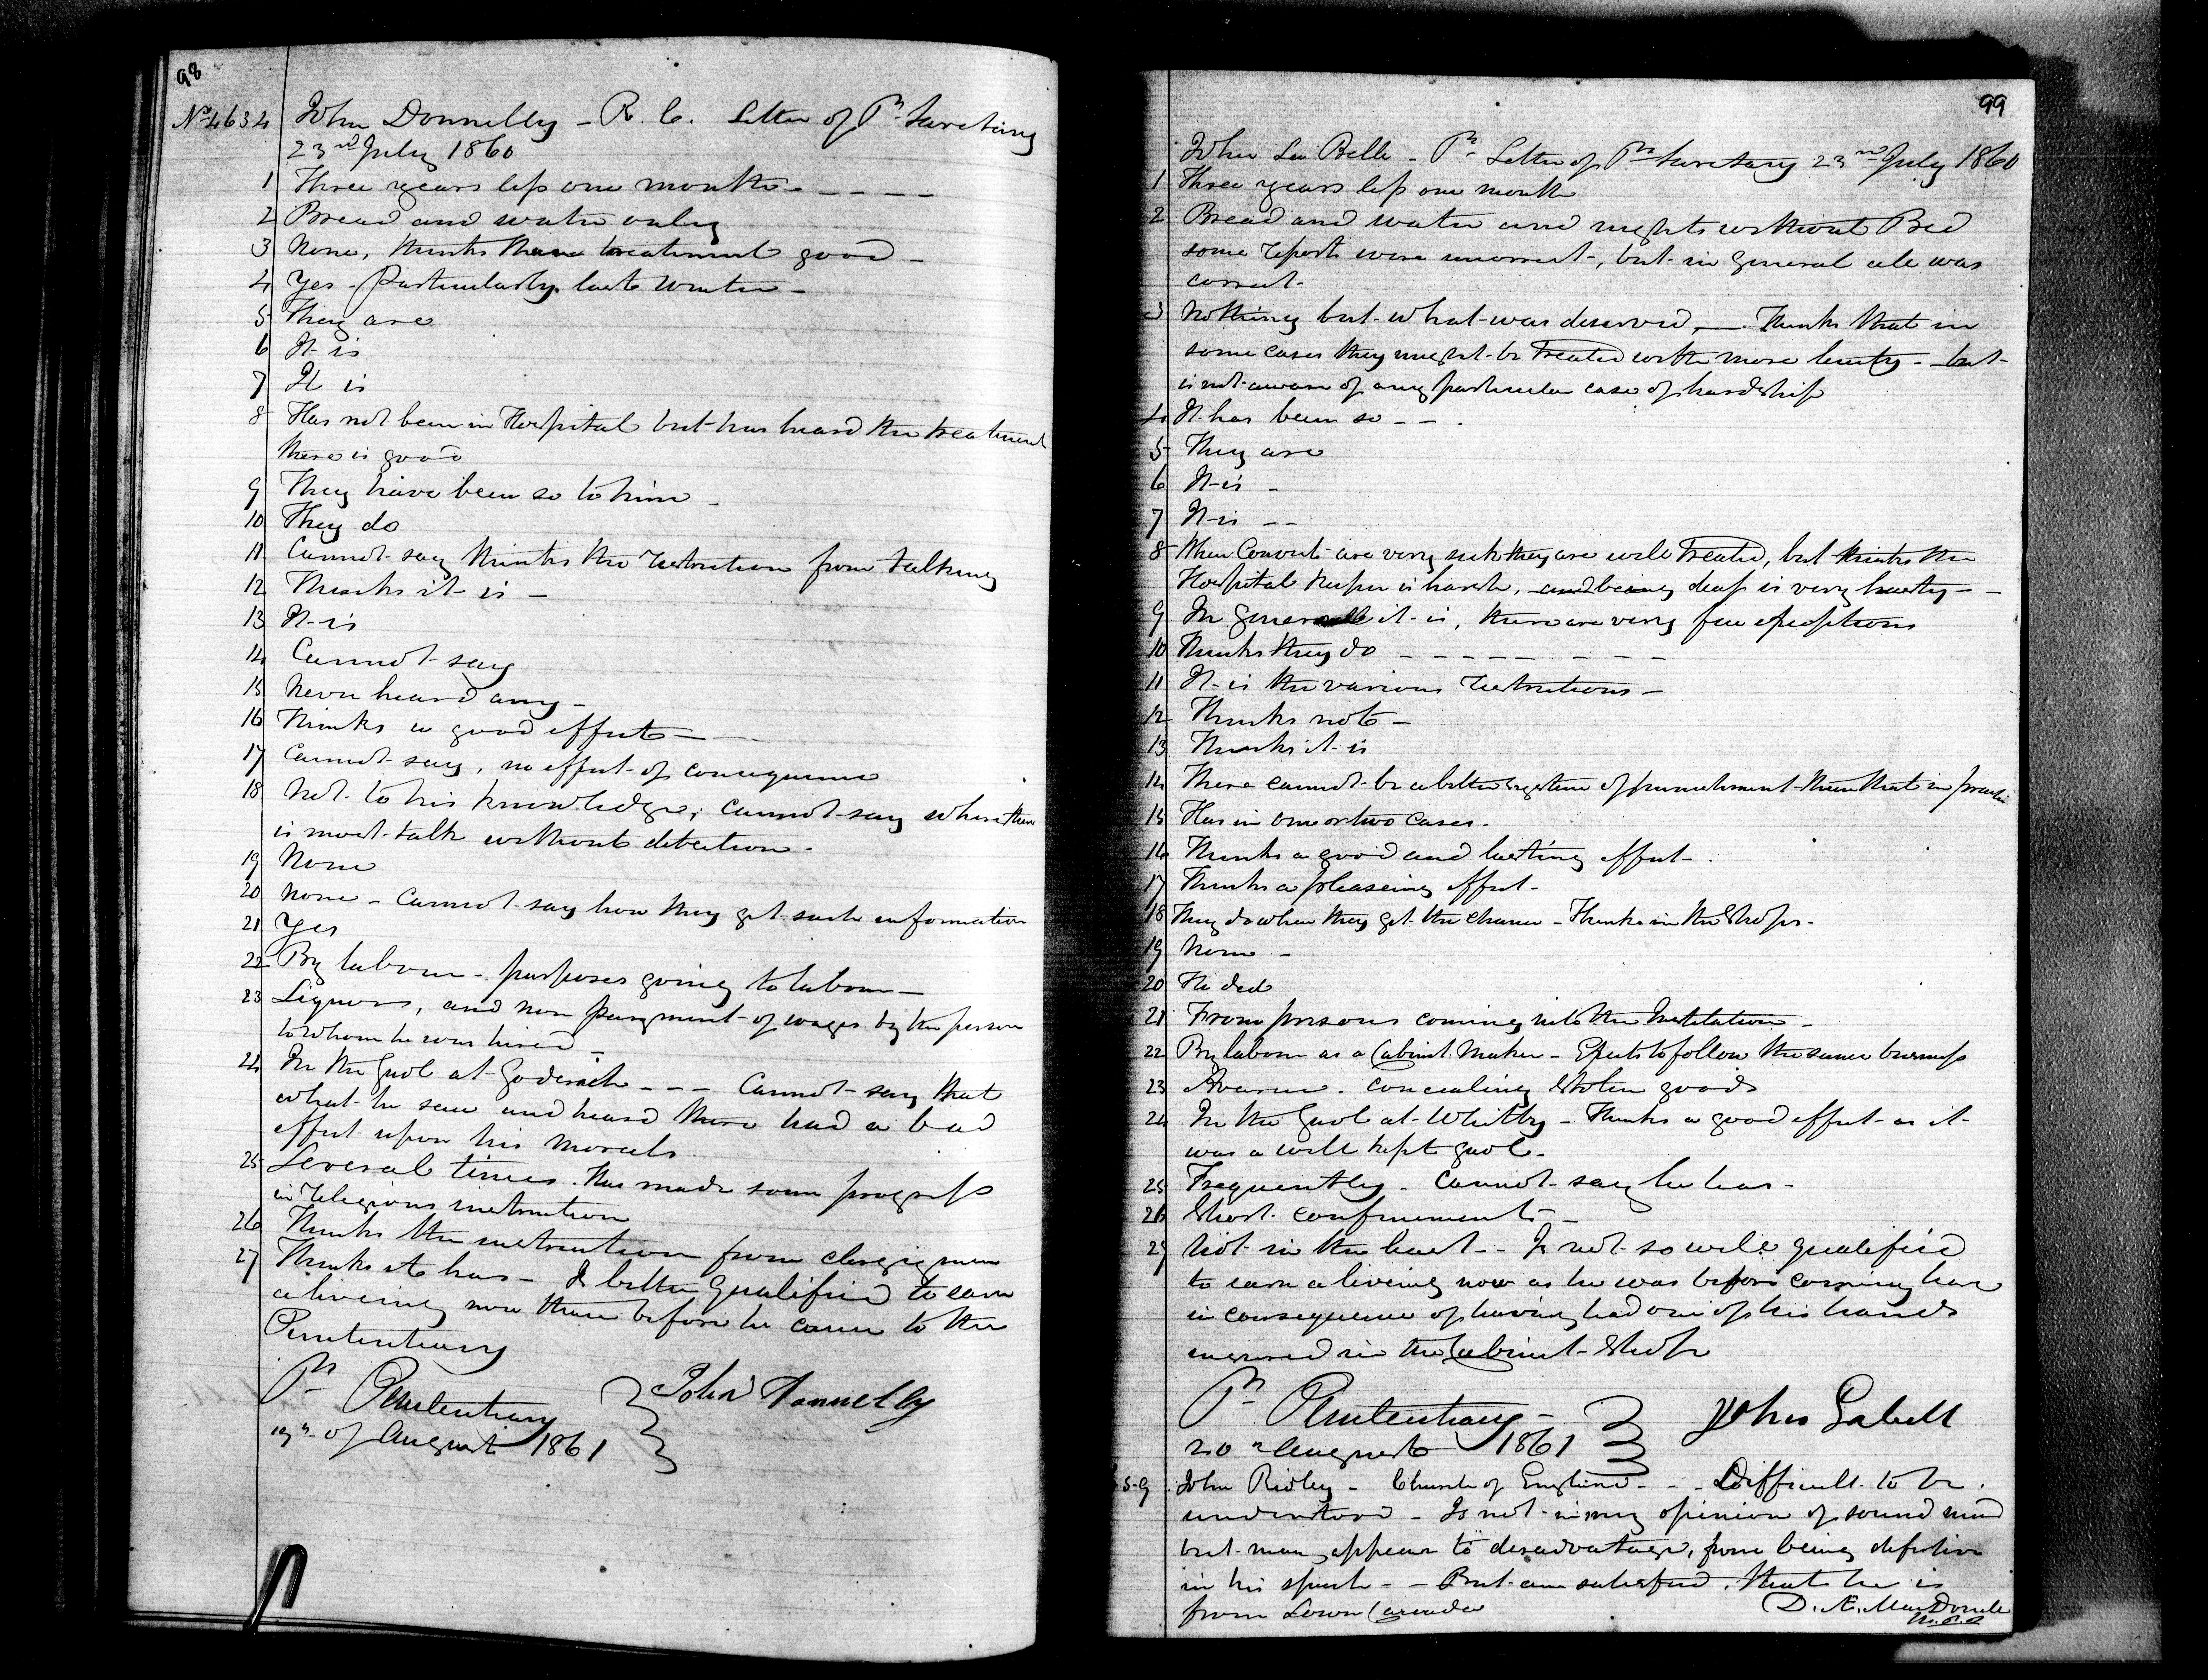 98
No 4634 John Donnelly - R. C. Letter of Pl. Secretary
23rd July 1860
1 Three years less one month - - - -
2 Bread and water only
3 None, thinks the treatment good -
4 Yes - Particularly last winter -
5 They are
6 It is
7 It is
8 Has not been in Hospital but has heard the treatment
there is good
9 They have been so to him -
10 They do
11 Cannot say thinks the restriction from talking
12 Thinks it is -
13 It is
14 Cannot say
15 Never heard any -
16 Thinks a good effect -
17 Cannot say, no effect of consequence
18 Not to his knowledge, cannot say where there
is most talk without detection -
19 None
20 None - Cannot say how they get such information
21 Yes
22 By labour - purposes going to labour -
23 Liquors, and non payment of wages by the person
to whom he was hired -
24 In the Gaol at Goderich - - - Cannot say that
what he saw and heard there had a bad
effect upon his morals
25 Several times. Has made some progress
in religious instruction
26 Thinks the instruction from clergymen
27 Thinks it has - Is better qualified to earn
a liveing now than before he came to the
Penitentiary
Pl Penitentiary } John Donnelly
19th of August 1861
99
John La Belle - Pl. Letter of Pl Secretary 23rd July 1860
1 Three years less one month
2 Bread and water and nights without Bed
some reports were incorrect, but in general all was
correct -
3 Nothing but what was deserved, - Thinks that in
some cases they might be treated with more lenity - but
is not aware of any particular case of hardship
4 It has been so - - .
5 They are
6 It is -
7 It is - -
8 When Convicts are very sick they are well treated, but thinks the
Hospital Keeper is harsh, and being deaf is very hasty -
9 In general it is, there are very few exceptions
10 Thinks they do - - - - - - - -
11 It is the various restrictions -
12 Thinks not -
13 Thinks it is
14 There cannot be a better system of punishment than that in practice
15 Has in one or two cases.
16 Thinks a good and lasting effect - .
17 Thinks a pleaseing effect -
18 They do when they get the chance - Thinks in the Shops -
19 None -
20 He did
21 From persons coming into the Institution -
22 By labour as a Cabinet Maker - Expects to follow the same business
23 Avarice - concealing Stolen goods
24 In the Gaol at Whitby - Thinks a good effect as it
was a well kept gaol -
25 Frequently - Cannot say he has -
26 Short confinements -
27 Not in the least - Is not so well qualified
to earn a liveing now as he was before coming here
in consequence of having had one of his hands
injured in the Cabinet Shop
Pl Penitentiary - } John Labell
20th August 1861
John Ridley - Church of England - - Difficult to be
understood - Is not in my opinion of sound mind
but may appear to disadvantage, from being defective
in his speech - - But am satisfied, that he is
from Lower Canada D. Æ. MacDonell